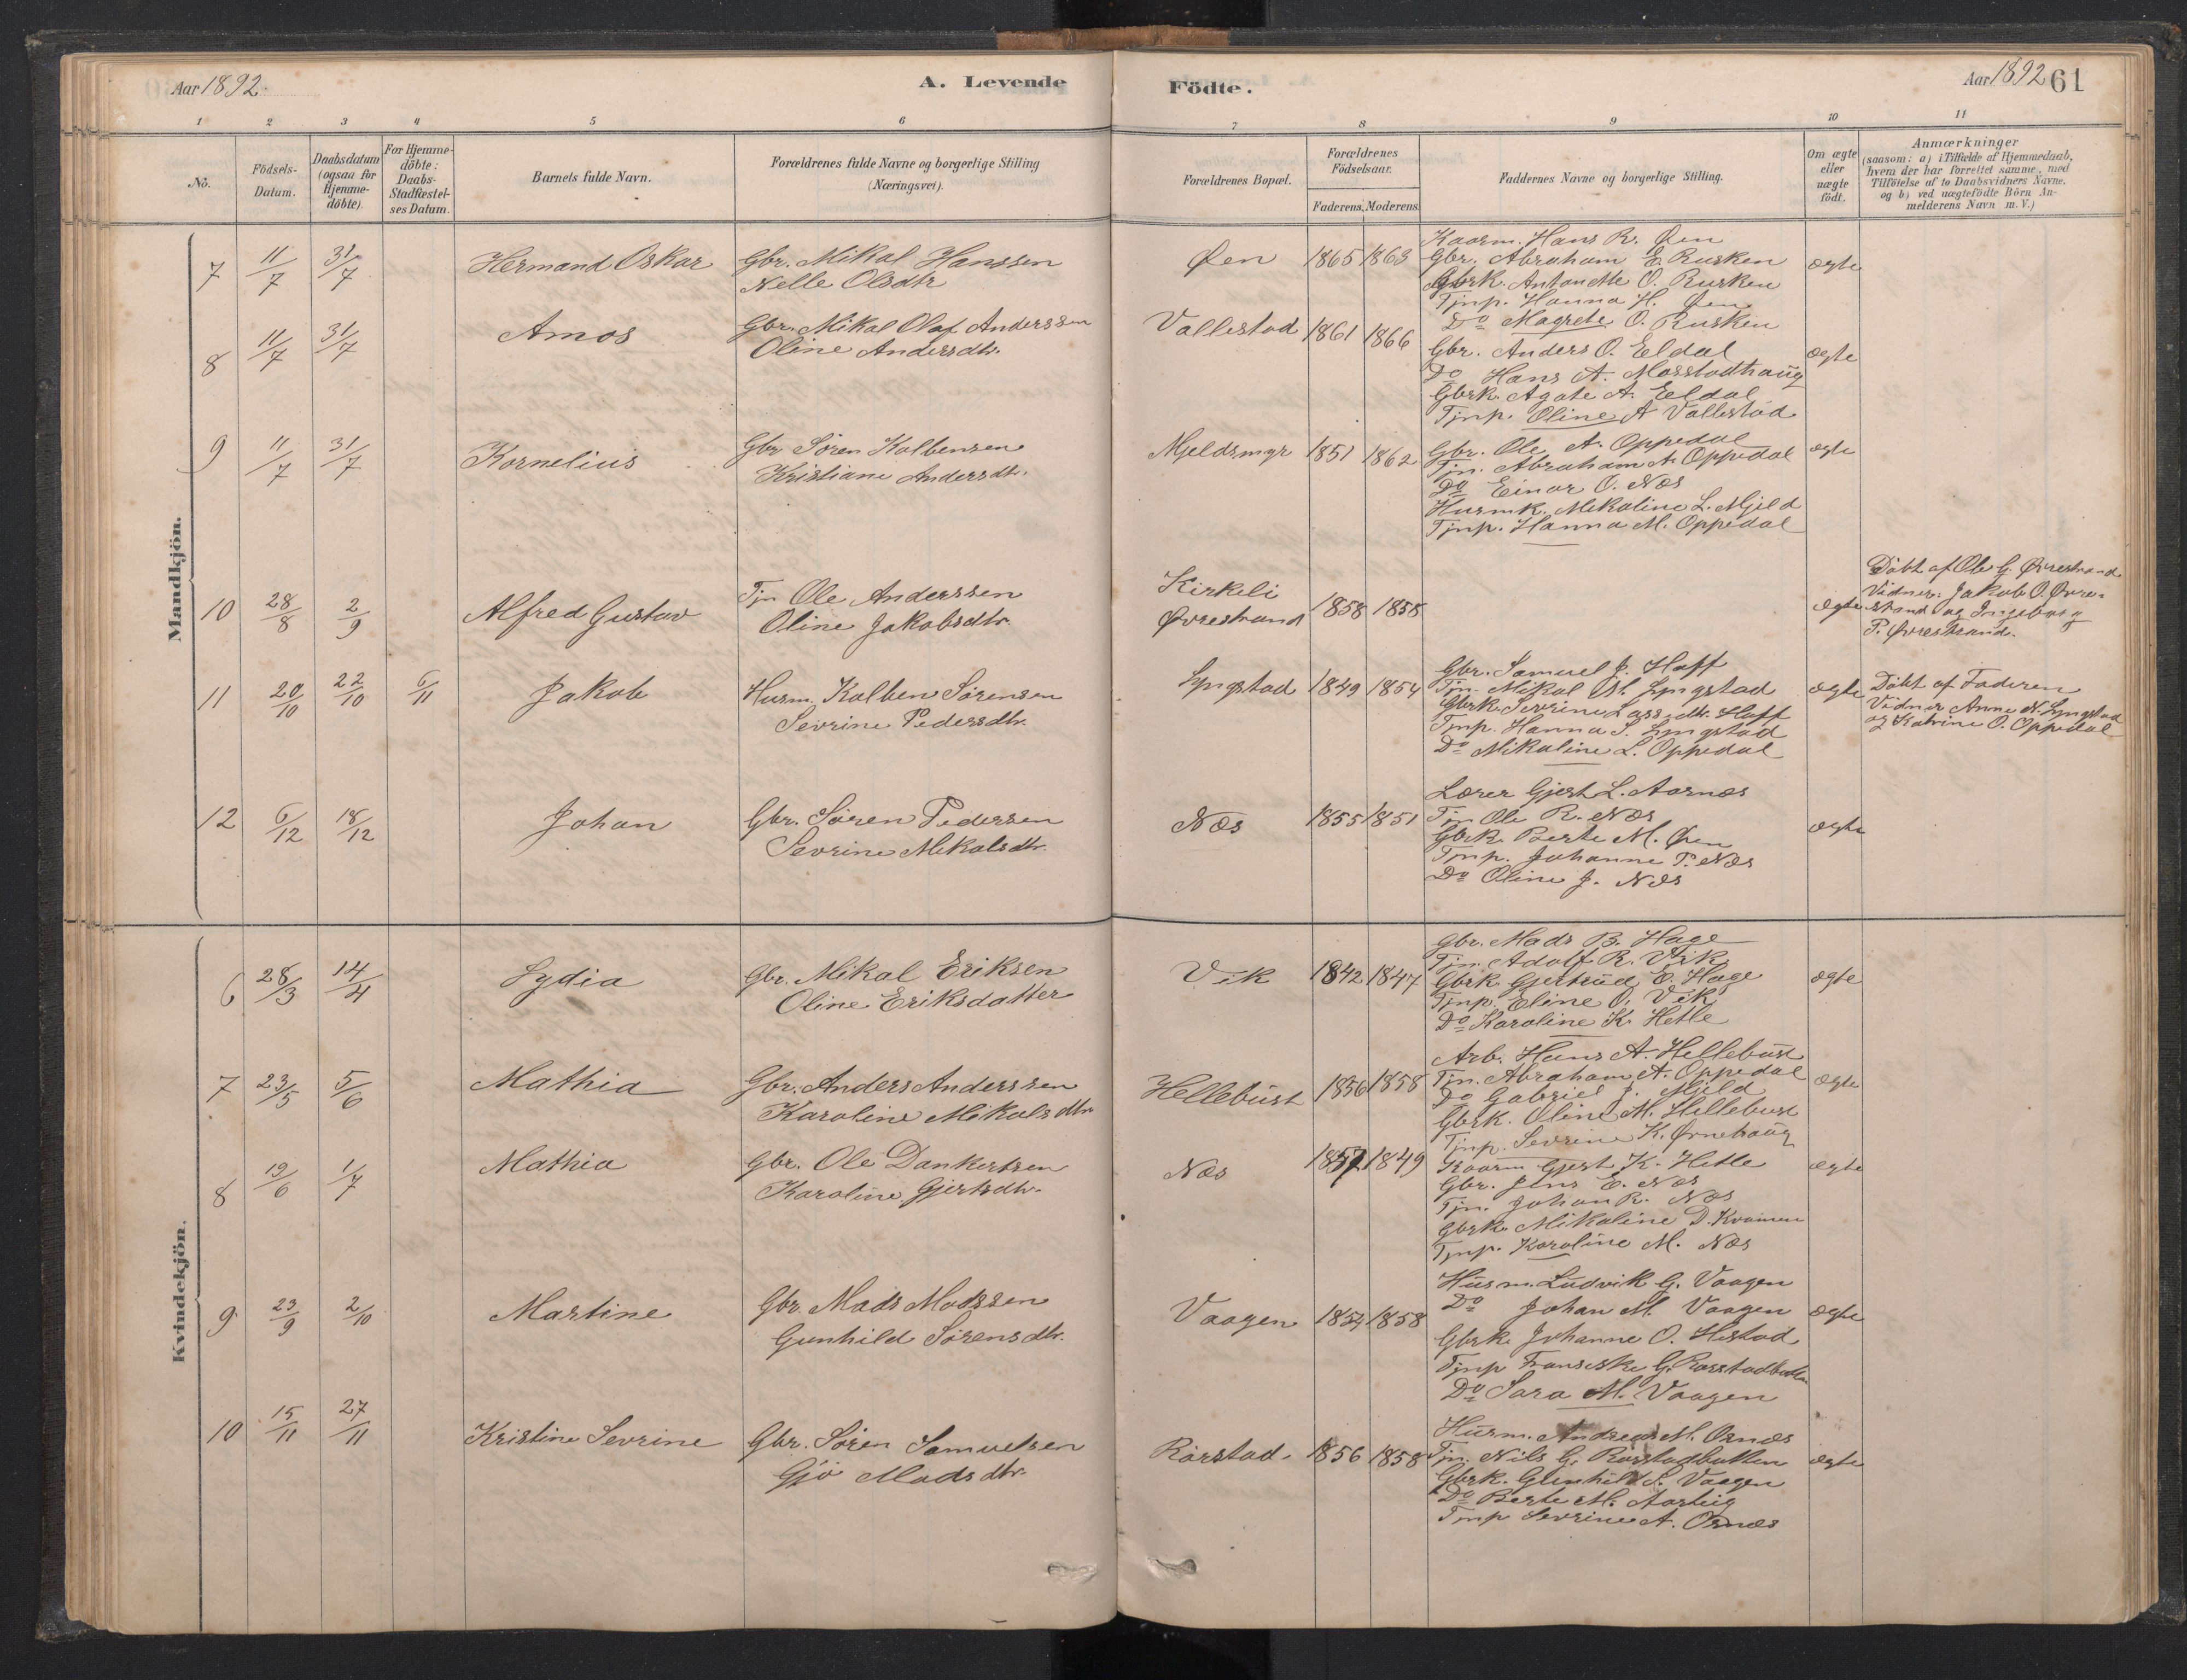 Aar 1892.
A. Levende
Födte.
Aar 1892 61
1 2 3 4 5 6 7 8 9 10 11
No.
Födsels-
Datum.
Daabsdatum
(ogsaa for
Hjemme-
döbte).
For Hjemme-
döbte:
Daabs-
Stadfæstel-
ses Datum.
Barnets fulde Navn.
Forældrenes fulde Navne og borgerlige Stilling
(Næringsvei).
Forældrenes Bopæl.
Forældrenes
Födselsaar.
Faderens. Moderens.
Faddernes Navne og borgerlige Stilling.
Om ægte
eller
uægte
födt.
Anmærkninger
(saasom: a) i Tilfælde af Hjemmedaab,
hvem der har forrettet samme, med
Tilföielse af to Daabsvidners Navne,
og b) ved uægtefödte Börn An-
melderens Navn m. V.)
Mandkjön.
7 11/7 31/7 Hermand Oskar
Gbr. Mikal Hanssen
Nelle Olsdtr
Øen 1865 1863
Kaarm. Hans R. Øen
Gbr. Abraham E. Rusken
Gbrk. Antonette O. Rusken
Tjnp. Hanna H. Øen
Do Magrete O. Rusken
ægte
8 11/7 31/7 Amos
Gbr. Mikal Olaf Anderssen
Oline Andersdtr.
Vallestad 1861 1866
Gbr. Anders O. Eldal
Do Hans A. Masstadhaug
Gbrk. Agate A. Eeldal
Tjnp. Oline A Vallestad
ægte
9 11/7 31/7 Kornelius
Gbr Søren Kolbensen
Kristiane Andersdtr.
Mjeldsmyr 1851 1862
Gbr. Ole A. Oppedal
Tjn. Abraham A. Oppedal
Do Einar O. Næs
Husmk. Mikaline L. Mjeld
Tjnp. Hanna M. Oppedal
ægte
10 28/8 2/9 Alfred Gustav
Tjn Ole Anderssen
Oline Jakobsdtr.
Kirkeli
Øvrestrand 1858 1858
ægte
Döbt af Ole G. Øvrestrand
Vidner: Jakob O. Øvre-
strand og Ingeborg
P. Øvrestrand.
11 20/10 22/10 6/11 Jakob
Husm. Kolben Sørensen
Sevrine Pedersdtr.
Lyngstad 1849 1854
Gbr. Samuel J. Haff
Tjn. Mikal M. Lyngstad
Gbrk. Sevrine Lassedtr. Haff
Tjnp. Hanna S. Lyngstad
Do Mikaline L. Oppedal
ægte
Döbt af Faderen
Vidner Anne N. Lyngstad
og Katrine O. Oppedal
12 6/12 18/12 Johan
Gbr. Søren Pedersen
Sevrine Mikalsdtr.
Næs 1855 1851
Lærer Gjert L. Aarnæs
Tjn Ole R. Næs
Gbrk. Berte M. Øen
Tjnp. Johanne P. Næs
Do Oline J. Næs
ægte
Kvindekjön.
6 28/3 14/4 Lydia
Gbr. Mikal Eriksen
Oline Eriksdatter
Vik 1842 1847
Gbr. Mads B. Hage
Tjn. Adolf R. Vik
Gbrk. Gjertrud E. Hage
Tjnp. Eline O. Vik
Do Karoline K. Hetle
ægte
7 23/5 5/6 Mathia
Gbr. Anders Anderssen
Karoline Mikalsdtr
Hellebust 1856 1858
Arb. Hans A. Hellebust
Tjn. Abraham A. Oppedal
Do Gabriel J. Mjeld
Gbrk. Oline M. Hellebust
Tjnp. Sevrine K. Ørnehaug
ægte
8 19/6 1/7 Mathia
Gbr. Ole Dankertsen
Karoline Gjertsdtr.
Næs 1849
Kaarm Gjert K. Hetle
Gbr. Jens E. Næs
Tjn. Johan R. Næs
Gbrk. Mikaline D. Kvamen
Tjnp. Karoline M. Næs
ægte
9 23/9 2/10 Martine
Gbr. Mads Madssen
Gunhild Sørensdtr.
Vaagen 1854 1858
Husm. Ludvik G. Vaagen
Do Johan M. Vaagen
Gbrk. Johanne O. Hestad
Tjnp Franseske G. Rørstadbotten
Do Sara M. Vaagen
ægte
10 15/11 27/11 Kristine Sevrine
Gbr. Søren Samuelsen
Gjø Madsdtr.
Rörstad. 1856 1858
Husm. Andreas M. Osnæs
Tjn. Nils G. Rørstadbotten
Gbrk. Gunhild S. Vaagen
Do Berte M. Aarleig
Tjnp Sevrine A. Osnæs
ægte